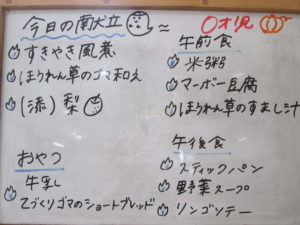 今日の献立
すきやき風煮
ほうれん草のゴマ和え
(添)梨
おやつ
牛乳
手づくりゴマのショートブレッド
0才児
午前食
米粥
マーボー豆腐
ほうれん草のすまし汁
午後食
スティックパン
野菜スープ
リンゴソテー